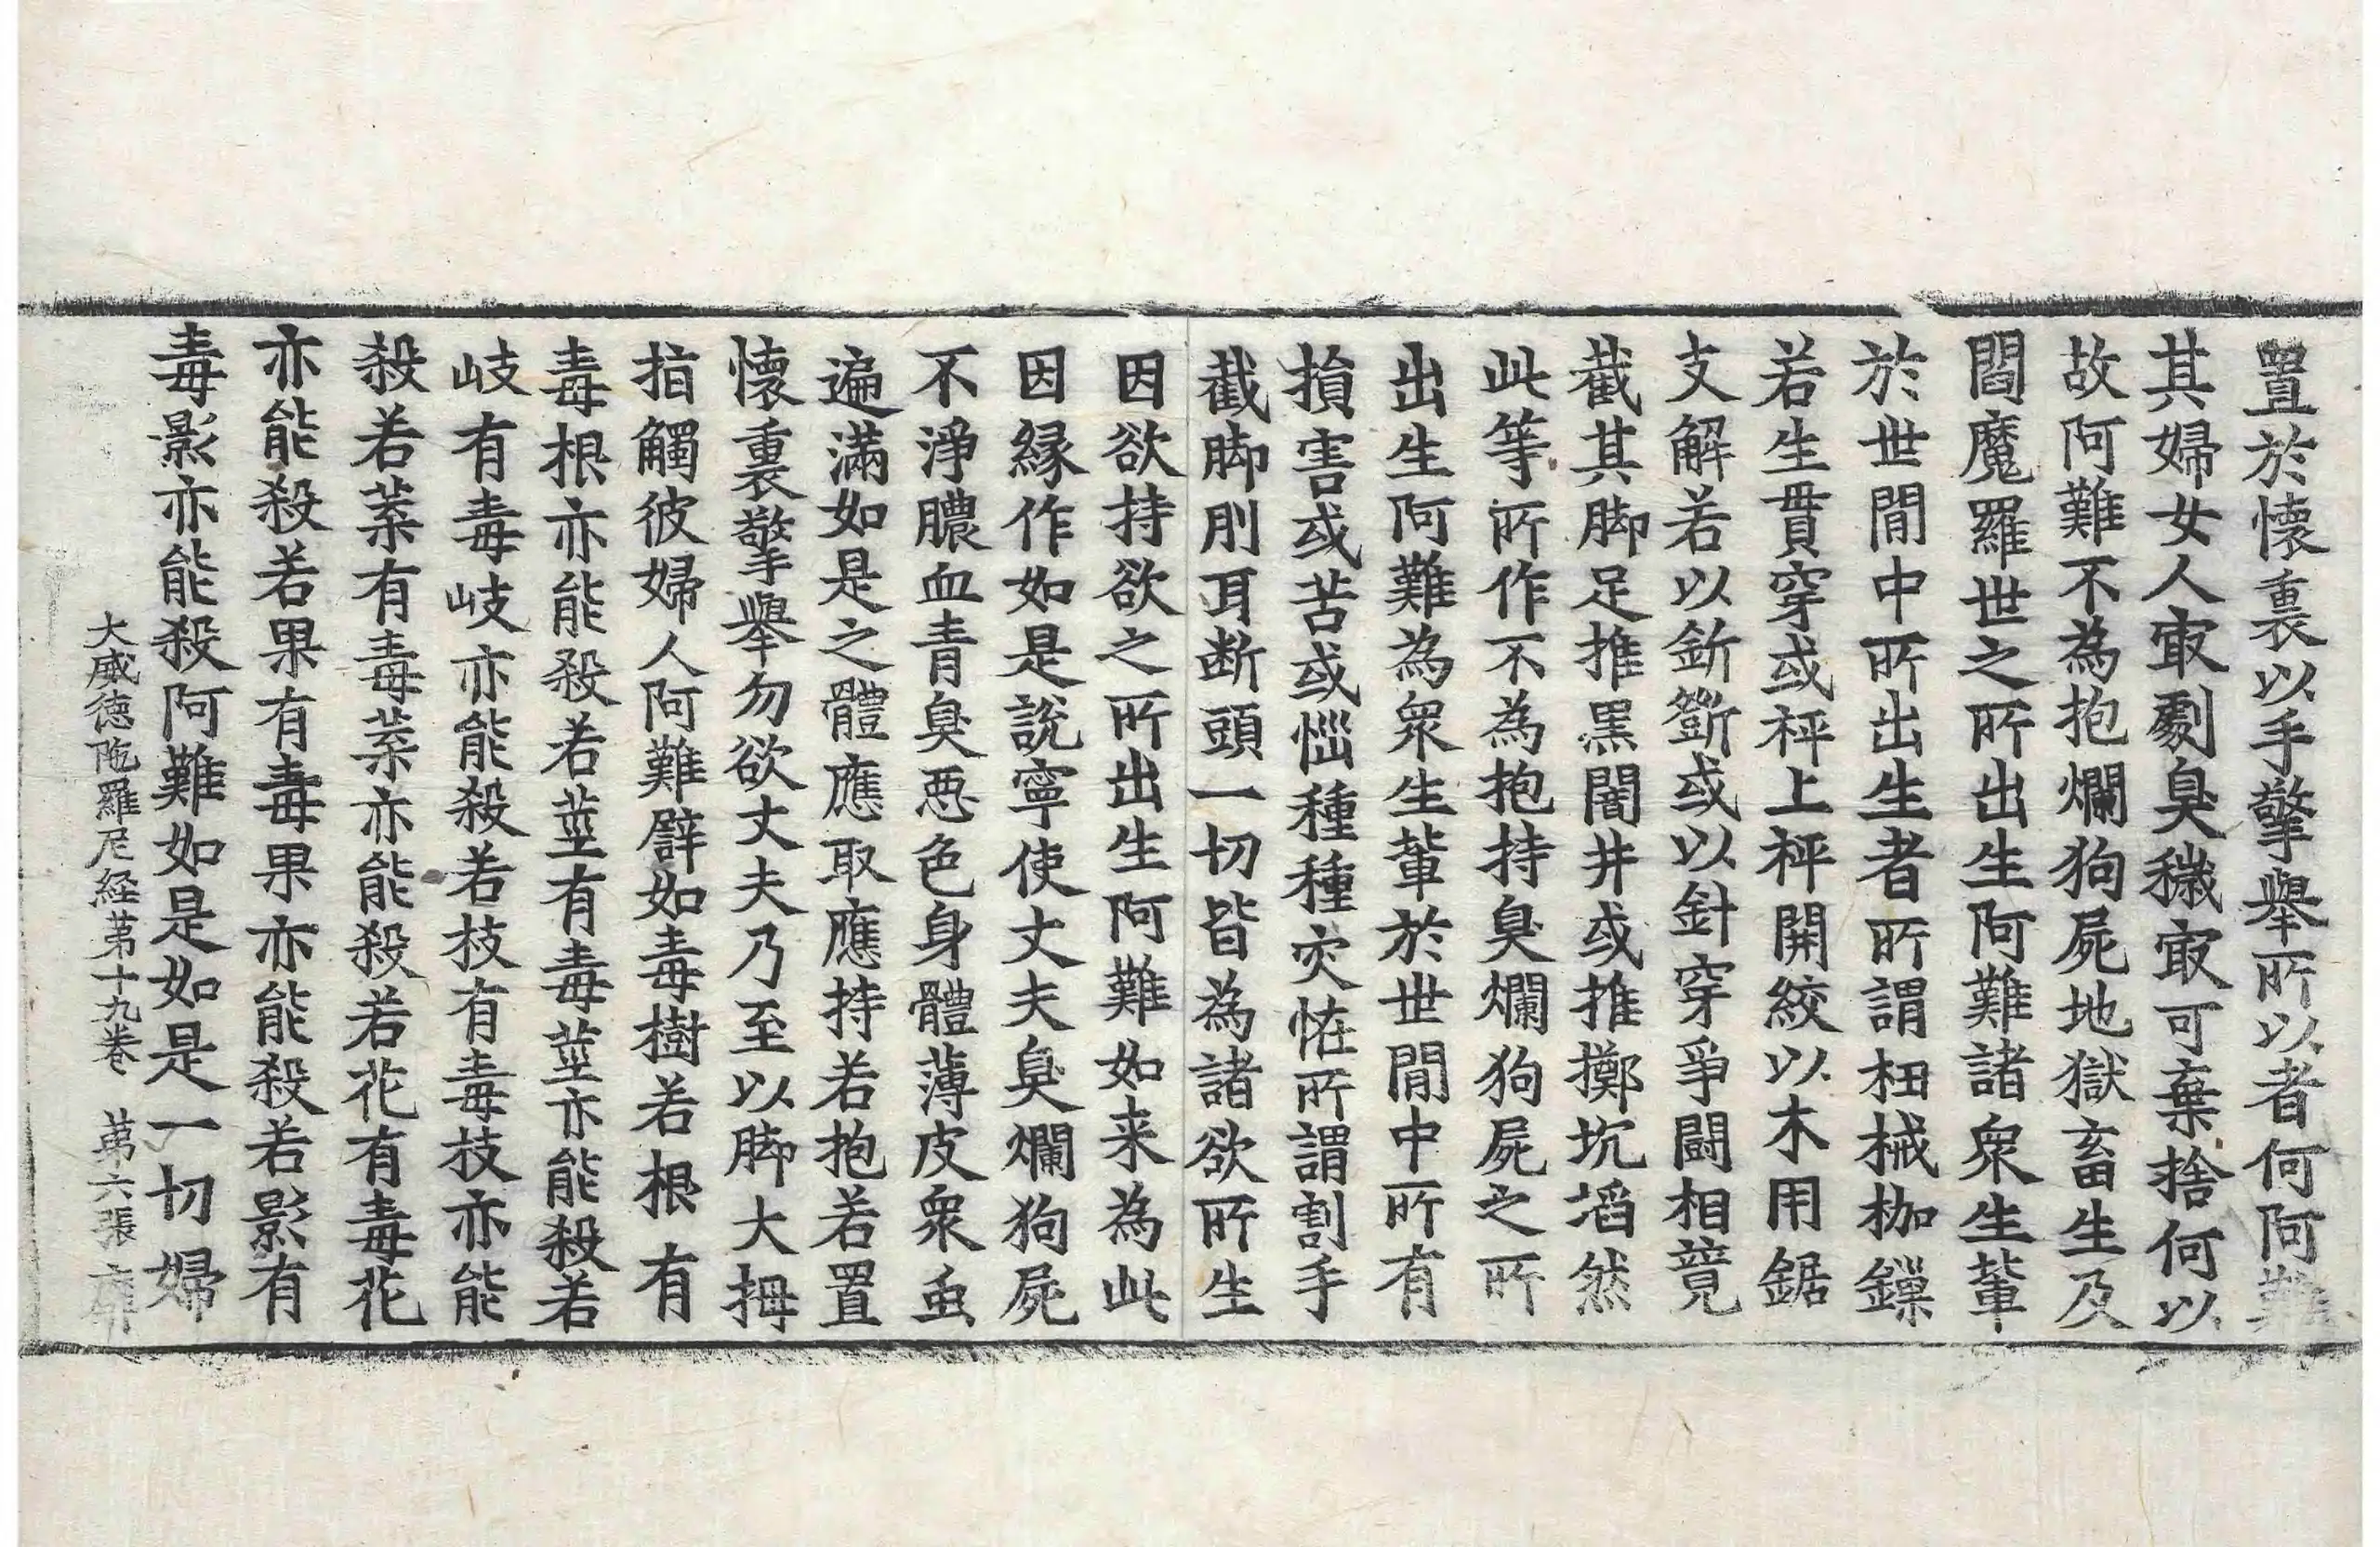 置於懷裏以手擎舉所以者何阿難
其婦女人㝡劇臭穢㝡可棄捨何以
故阿難不為抱爛狗屍地獄畜生及
閻魔羅世之所出生阿難諸衆生輩
於世閒中所出生者所謂杻械枷鏁
若生貫穿或枰上枰開絞以木用鋸
支解若以釿斲或以針穿爭鬪相競
截其脚足推黒闇井或推擲坑滔然
此等所作不為抱持臭爛狗屍之所
出生阿難為衆生輩於世閒中所有
損害或苦或惱種種灾恠所謂割手
截脚刖耳断頭一切皆為諸欲所生
因欲持欲之所出生阿難如来為此
因縁作如是說寧使丈夫臭爛狗屍
不淨膿血青臭惡色身體薄皮衆虫
遍滿如是之體應取應持若抱若置
懷裏擎舉勿欲丈夫乃至以脚大拇
指觸彼婦人阿難譬如毒樹若根有
毒根亦能殺若莖有毒莖亦能殺若
岐有毒岐亦能殺若枝有毒枝亦能
殺若葉有毒葉亦能殺若花有毒花
亦能殺若果有毒果亦能殺若影有
毒影亦能殺阿難如是如是一切婦
大威徳陁羅尼経苐十九卷 苐六張